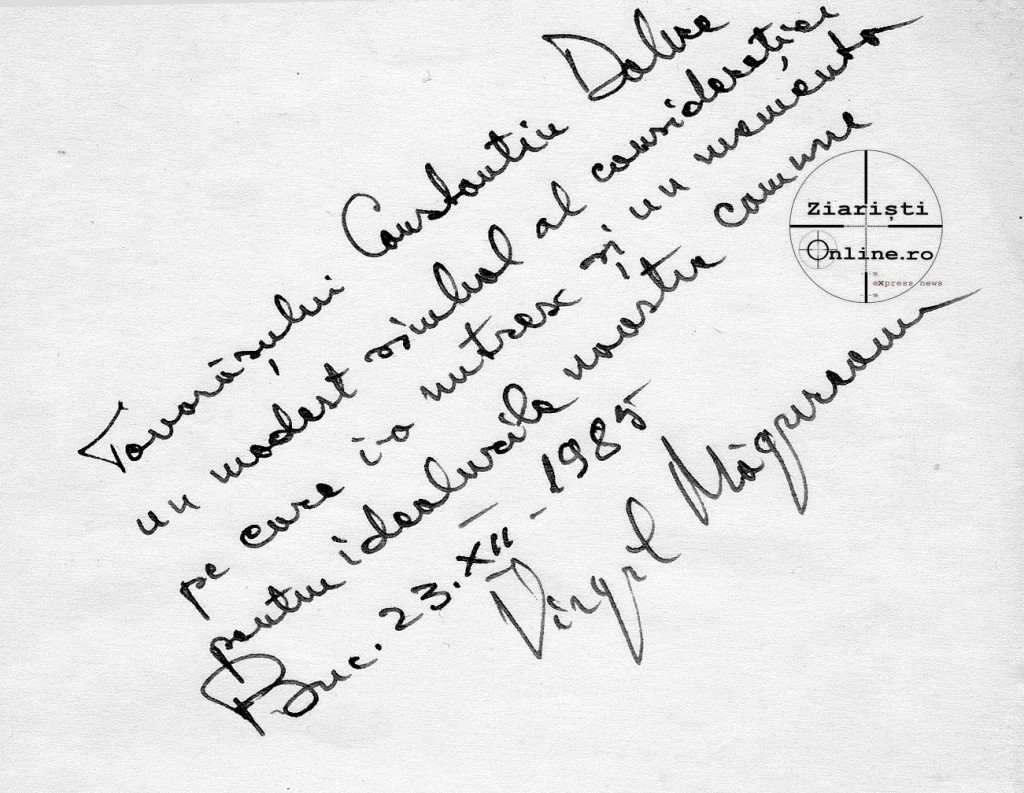 Tovarășului Constantin Dobre
un modest simbol al considerației
pe care i-o nutresc și un memento
pentru idealurile noastre comune
Buc. 23.XII-1985
Virgil Măgureanu
Ziariști
Online.ro
express news